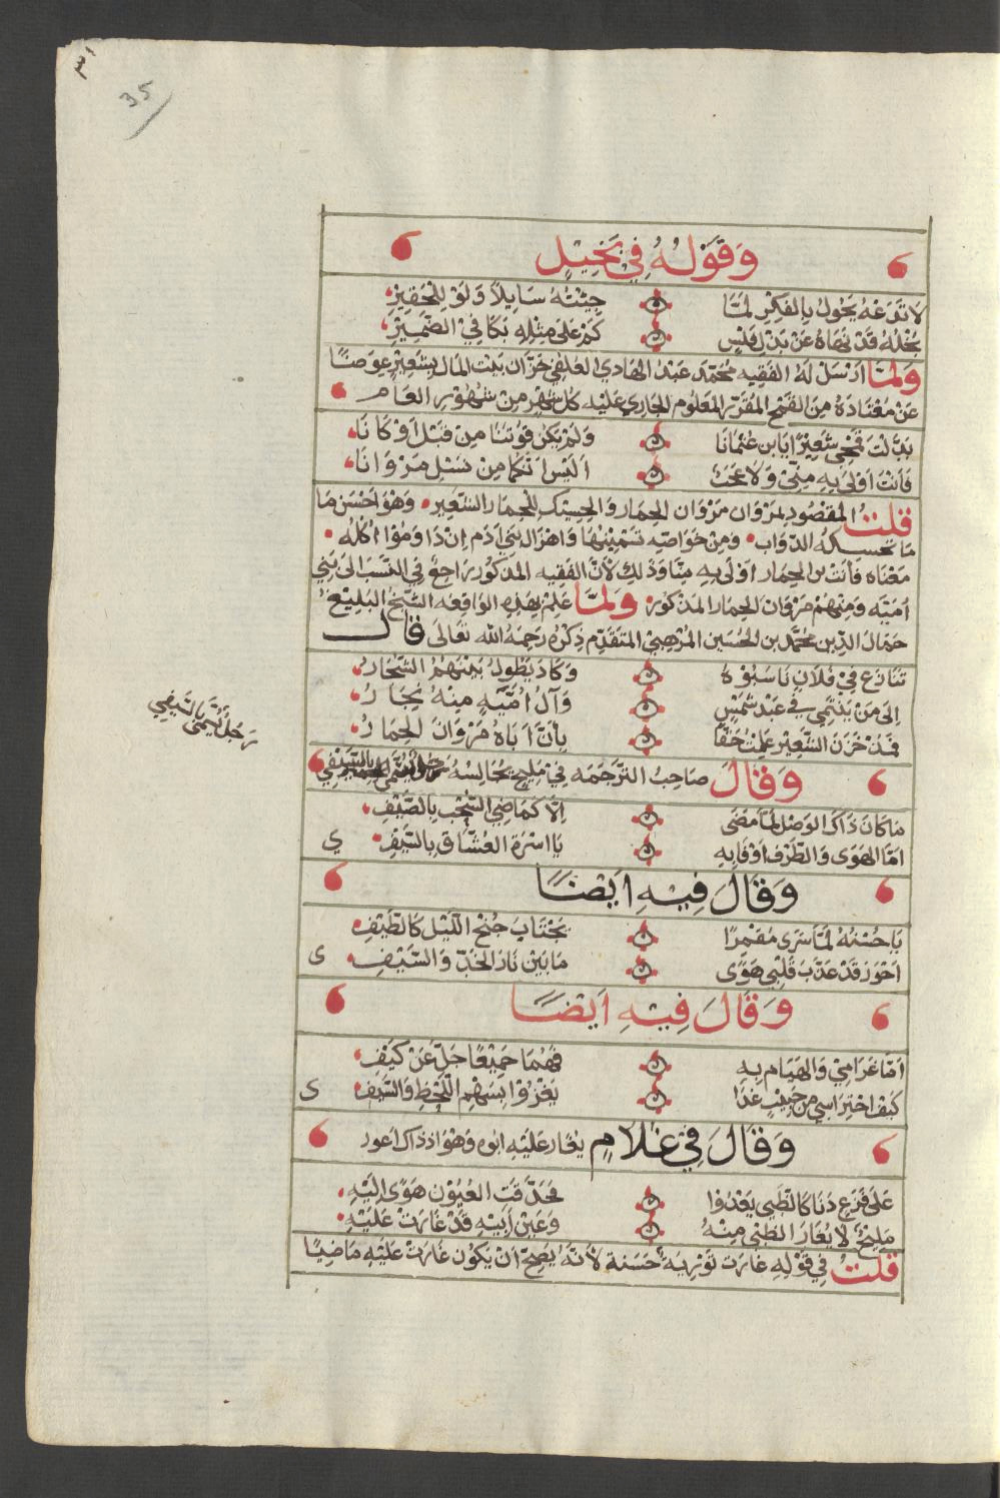 ٣١
35
وَقَوْلُهُ فِي بَخِيلٍ
لَا تَدَعْهُ يَجُولُ بِالفِكْرِ لَمَّا جِئْتَهُ سَايِلاً وَلَوْ لِلْحَقِيرِ
بُخْلُهُ قَدْ نَهَاهُ عَنْ بَذْلِ فَلْسٍ كَمْ عَلَى مِثْلِهِ بَكَا فِي الضَّمِيرِ
وَلَمَّا ارْسَلَ لَهُ الفَقِيه مُحَمَّد عَبْدُ الهَادِي العُلفِي خَزّان بَيْت المَال بِشَعِيْر عِوَضًا
عَنْ مُعْتَادَهُ مِنَ القَمْح المُقَرَّر المَعْلُوم الجَارِي عَلَيْه كُلّ شَهْر مِنْ شُهُوْرِ العَام
بَدَّلْتَ قَمْحِي شَعِيْرًا يَا بن عُثْمَانَا وَلَمْ يَكُنْ قُوْتُنَا مِنْ قَبْل اَوْ كَانَا
فَأنْتَ اَوْلَى بِهِ مِنِّي وَلَا عَجَبٌ اَلَسْ اَنْتُمَا مِنْ نَسْل مَرْوَانَا
قلتُ المقصُود بمَرْوَان مَرْوَان الحِمَار وَالحِيْتك للحِمَار الشَّعِير وَهْوَ احْسَن مَا
مَا تمسكه الدّوَاب وَمِنْ خوَاصِّه تَسْمِيْنِهَا وَاهْزَال بَنِي اَدَم اِنْ دَاوَمُوْا اَكْلَه
مَعْنَاه فَأنْتَ بن الحِمَار اَوْلَى بِهِ مِنَّا وَذَلِكَ لأَنّ الفَقِيه المَذكُور رَاجِعٌ فِي النسَب الَى بَنِي
اُمَيَّه وَمِنْهُمْ مَرْوَان الحِمَار المَذْكُور وَلَمَّا عَلِمَ بِهَذِه الوَاقِعَه الشَّيْخ البَلِيْغ
جَمَال الدِّين مُحَمَّد بن الحُسَين المُرْهِبِي المتقدّم ذِكْرُهُ رَحِمَهُ الله تَعَالَى قال
تَنَازَعَ فِي فُلَانٍ نَاسَبُوْهُ وَكَادَ يَطُولُ بَيْنَهُمُ الشِّجَارُ
اِلَى مَنْ يَنْتَمِي فِي عَبْد شَمْسٍ وَآلُ اُمَيَّهٍ مِنْهُ نِجَارُ
فَمُذْ خَزَنَ الشَّعِيْر عَلِمْتُ حَقًّا بِأَنَّ اَبَاهُ مَرْوَانُ الحِمَارُ
رَجُل يُسَمَّى بِالسَّيْفِي
وَقَالَ صَاحِبُ التَّرْجَمَه فِي مَلِيح يُجَالِسُهُ
مَا كَانَ ذَاكَ الوَصْل لَمَّا مَضَى اِلَّا كَمَا ضِي السُّحْبِ بِالصَّيْفِ
اَمَّا الهَوَى وَالطَّرْف اَوْفَا بِهِ يَا اسْرَةَ العُشَّاقِ بِالسَّيْفِ ي
وَقَالَ فِيْهِ اَيْضًا
يَا حُسْنَهُ لَمَّا سَرَى مُقْمِرًا يَجْتَابُ جُنْحَ اللَّيْل كَالطَّيْفِ
اَحْوَر قَدْ عَذَّبَ قَلْبِي هَوًى مَا بَيْن نَار الخَدِّ وَالسَّيْفِ ى
وَقَالَ فِيْهِ اَيْضًا
اَمَّا غَرَامِي وَالهَيَام بِهِ فَهُمَا جَمِيْعًا جَلَّ عَنْ كَيْفِ
كَيْفَ احْتِرَاسِي مِن حَبِيْبٍ غَدَا يَغْزُوْا بِسَهْمِ اللَّحْظِ وَالسَّيْفِ ى
وَقَالَ فِي غُلَامٍ يَغَار عَلَيْهِ ابُوه وَهْوَ اذ ذَاكَ اعور
عَلَى فَزَعٍ دَنَا كَالظَّبِي يَعْدُوا فَحَدَّقَتِ العُيُوْن هَوًى اِلَيْهِ
مَلِيْحٌ لَا يَغَارَ الظَّبْى مِنْهُ وَعَيْن اَبِيْهِ قَدْ غَارَتْ عَلَيْهِ
قلتُ فِي قَوْلِهِ غَارَت تَوْرِيَةً حَسَنَة لأَنَّهُ يَصِحّ اَنْ يَكُوْن غَارَتْ عَلَيْهِ مَاضِيًا